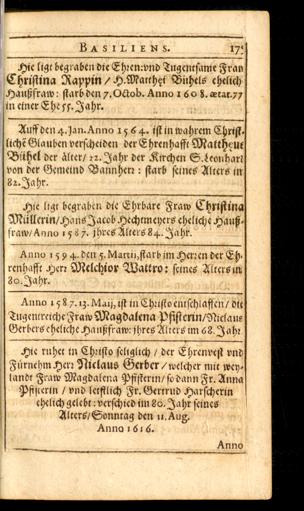 BASILIENS. 17
Hie ligt begraben die Ehren: vnd Tugentsame Fraw
Christina Rappin / H. Matthei Bühels ehelich
Haußfraw: starb den 7. Octob. Anno 1608. ætat. 77
in einer Ehr 55. Jahr.
Auff den 4. Jan. Anno 1564. ist in wahrem Christ-
lichē Glauben verscheiden der Ehrenhafft Mattheus
Bühel der älter / 22. Jahr der Kirchen S. Leonhart
von der Gemeind Bannherr: starb seines Alters in
82. Jahr.
Hie ligt begraben die Ehrbare Fraw Christina
Müllerin / Hans Jacob Hechtmeyers eheliche Hauß-
fraw / Anno 1587. jhres Alters 84. Jahr.
Anno 1594. den 5. Martii, starb im Herren der Eh-
renhaffte Herr Melchior Wattro: seines Alters in
80. Jahr.
Anno 1587. 13. Maij, ist in Christo entschlaffen / die
Tugentreiche Fraw Magdalena Pfisterin / Niclaus
Gerbers eheliche Haußfraw: jhres Alters im 68. Jahr
Hie ruhet in Christo seliglich / der Ehrenvest vnd
Fürnehm Herr Niclaus Gerber / welcher mit wey-
landt Fraw Magdalena Pfisterin / so dann Fr. Anna
Pfisterin / vnd letstlich Fr. Gertrud Harscherin
ehelich gelebt: verschied im 80. Jahr seines
Alters / Sonntag den 11. Aug.
Anno 1616.
Anno